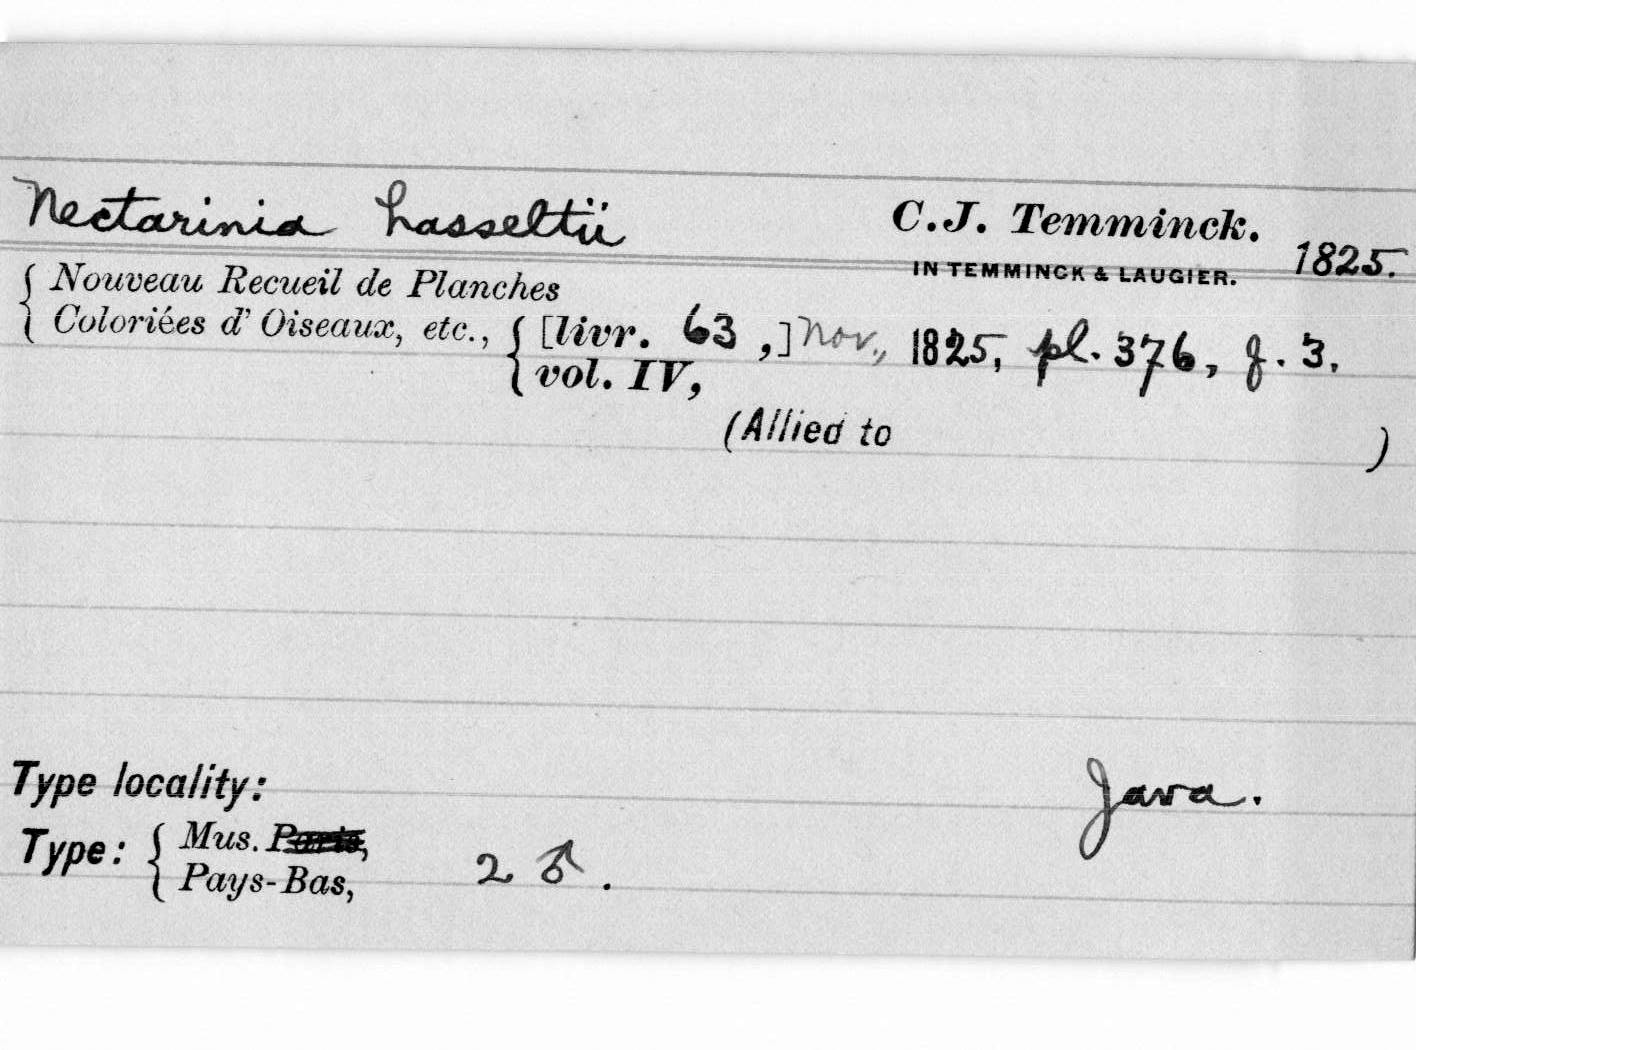 Nectarinia hasseltii C.J. Temminck. 1825.
IN TEMMINCK & LAUGIER.
{ Nouveau Recueil de Planches
Coloriées d' Oiseaux, etc., { [livr. 63 ,] Nov., 1825, pl. 376, f. 3.
vol. IV,
(Allied to )
Type locality: Java.
Type: { Mus. Paris,
Pays-Bas, 2 ♂.